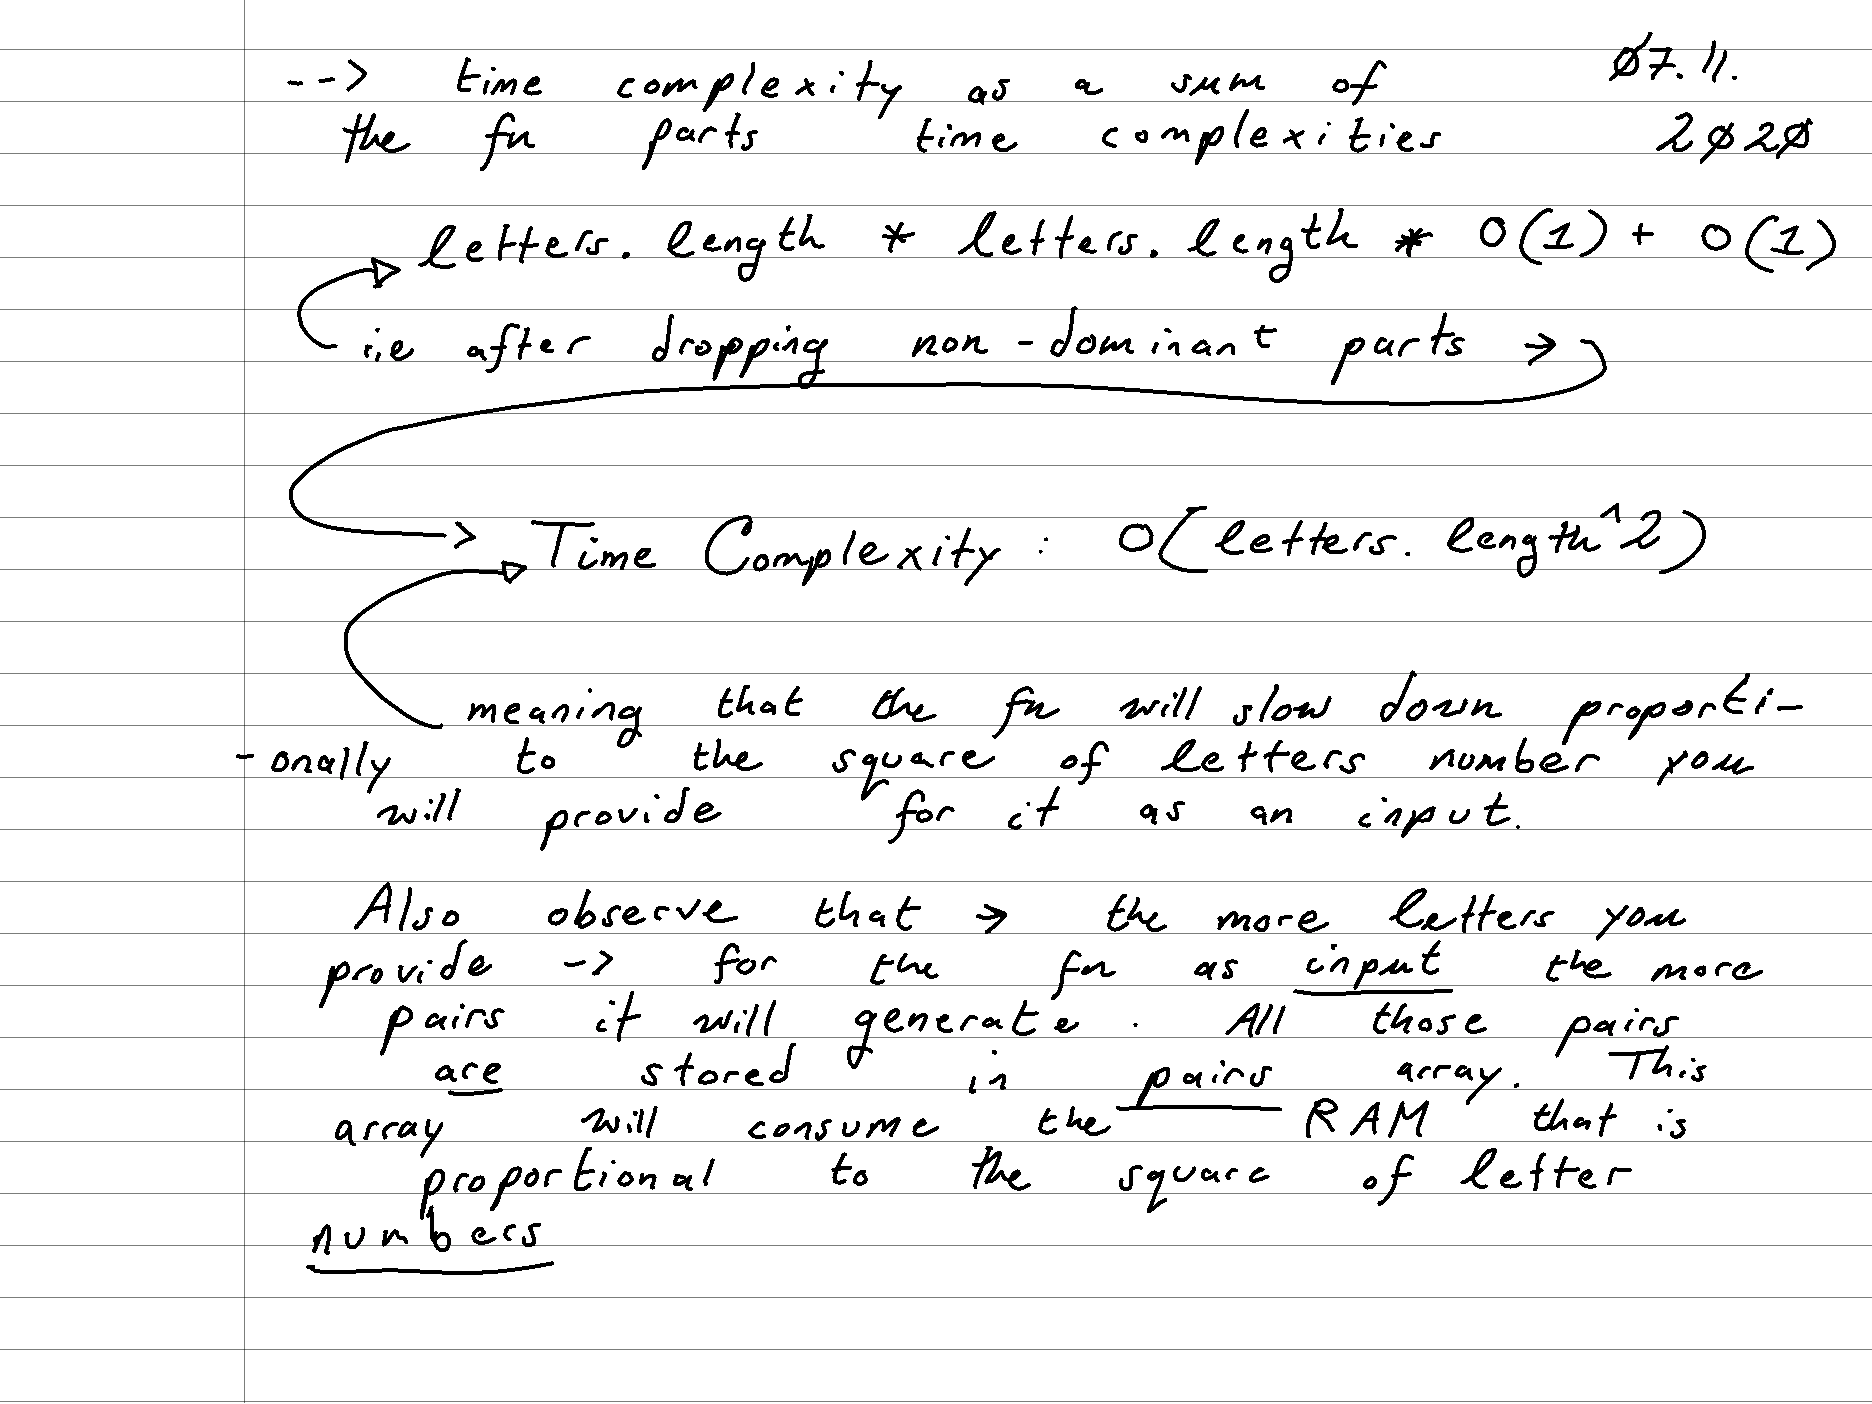 --> time complexity as a sum of 07.11.
the fn parts time complexities 2020
letters.length * letters.length * O(1) + O(1)
i,e after dropping non-dominant parts →
> Time Complexity : O(letters.length^2)
meaning that the fn will slow down proporti-
-onally to the square of letters number you
will provide for it as an input.
Also observe that → the more letters you
provide -> for the fn as input the more
pairs it will generate. All those pairs
are stored in pairs array. This
array will consume the RAM that is
proportional to the square of letter
numbers